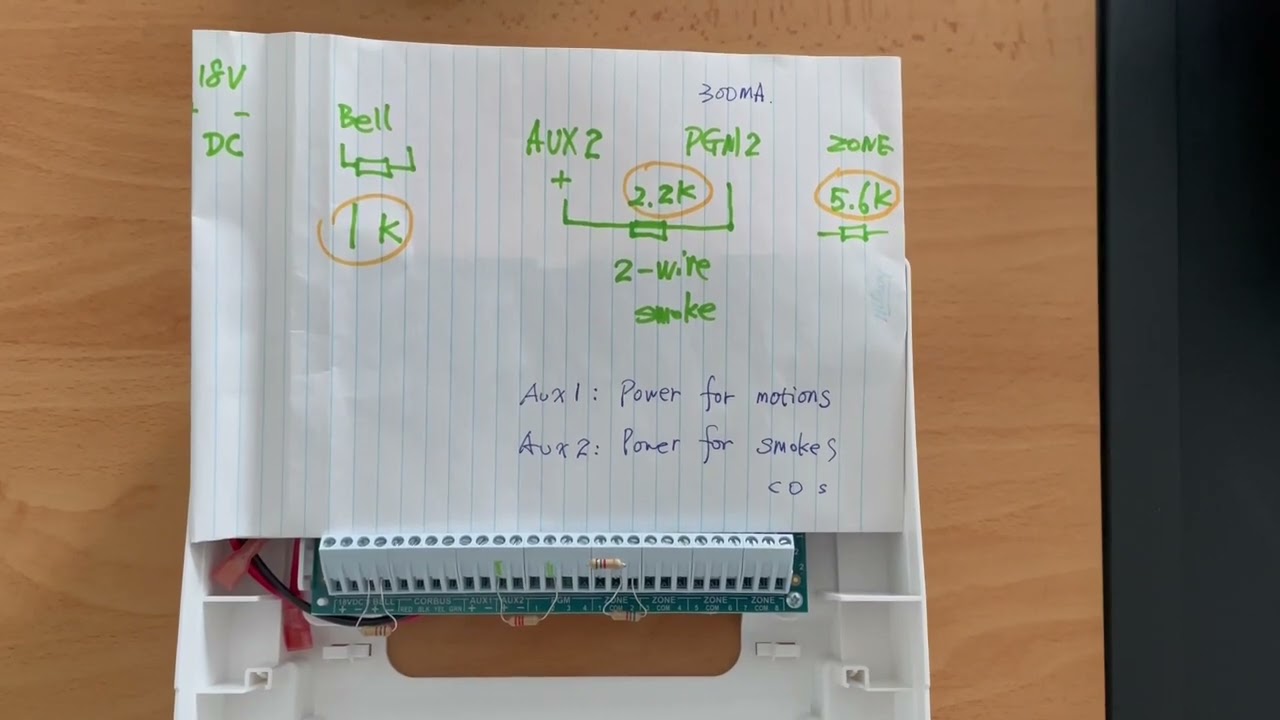 300MA.
18V
+ -
DC
Bell
1K
AUX2
+
PGM2
2.2K
2-wire
smoke
ZONE
5.6K
Aux1: Power for motions
Aux2: Power for smokes
COs
18VDC BELL CORBUS AUX1 AUX2 PGM ZONE ZONE ZONE ZONE
+ - + - RED BLK YEL GRN + - + - 1 2 3 4 1 COM 2 3 COM 4 5 COM 6 7 COM 8